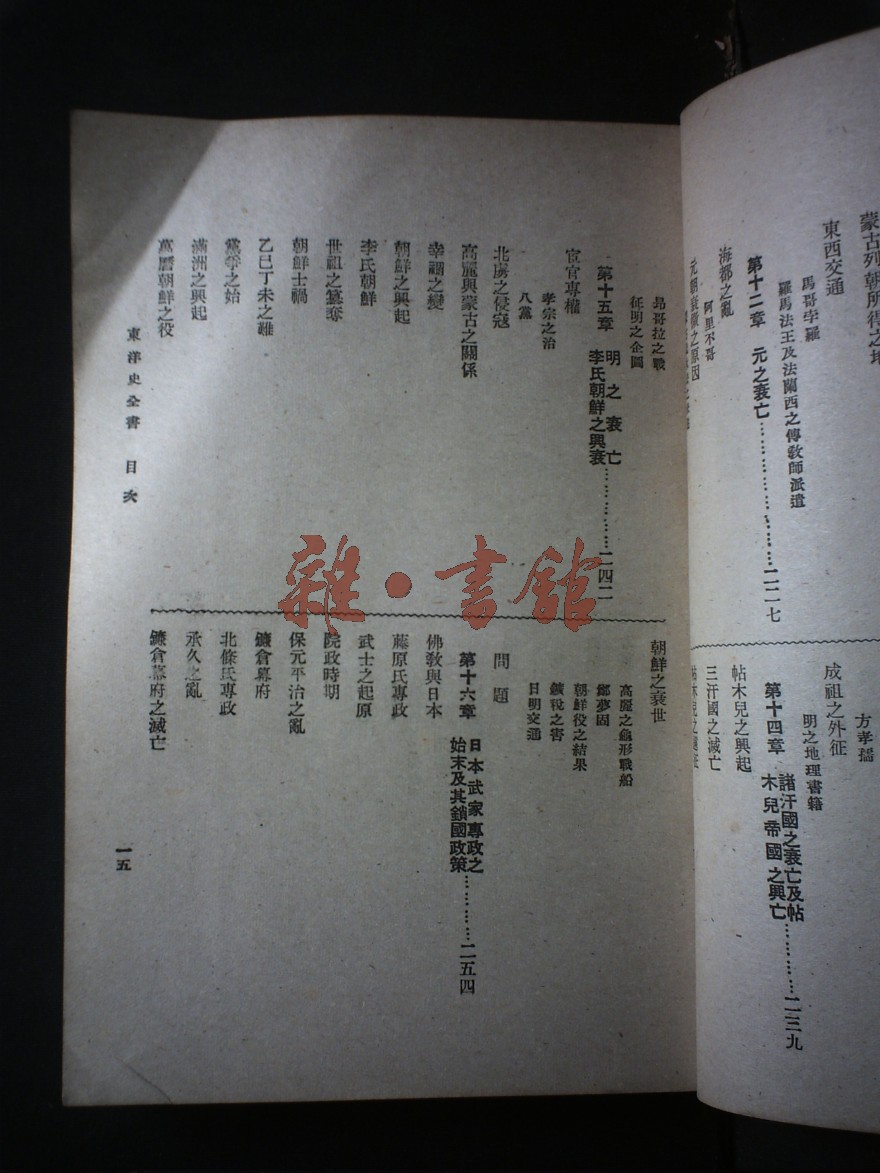 蒙古列朝所得之地
東西交通
馬哥孛羅
羅馬法王及法蘭西之傳教師派遣
第十二章 元之衰亡…………一二七
海都之亂
阿里不哥
元朝衰微之原因
方孝孺
成祖之外征
明之地理書籍
第十四章 諸汗國之衰亡及帖
木兒帝國之興亡…………二三九
帖木兒之興起
三汗國之滅亡
昂哥拉之戰
征明之企圖
第十五章 明之衰亡
李氏朝鮮之興衰…………二四二
宦官專權
孝宗之治
八黨
北虜之侵寇
高麗與蒙古之關係
辛禑之變
朝鮮之興起
李氏朝鮮
世祖之篡奪
朝鮮士禍
乙巳丁未之難
黨爭之始
滿洲之興起
萬曆朝鮮之役
朝鮮之衰世
高麗之龜形戰船
鄭夢周
朝鮮役之結果
礦稅之害
日明交通
問題
第十六章 日本武家專政之
始末及其鎖國政策…………二五四
佛敎與日本
藤原氏專政
武士之起原
院政時期
保元平治之亂
鎌倉幕府
北條氏專政
承久之亂
鎌倉幕府之滅亡
東洋史全書 目次
一五
雜·書館